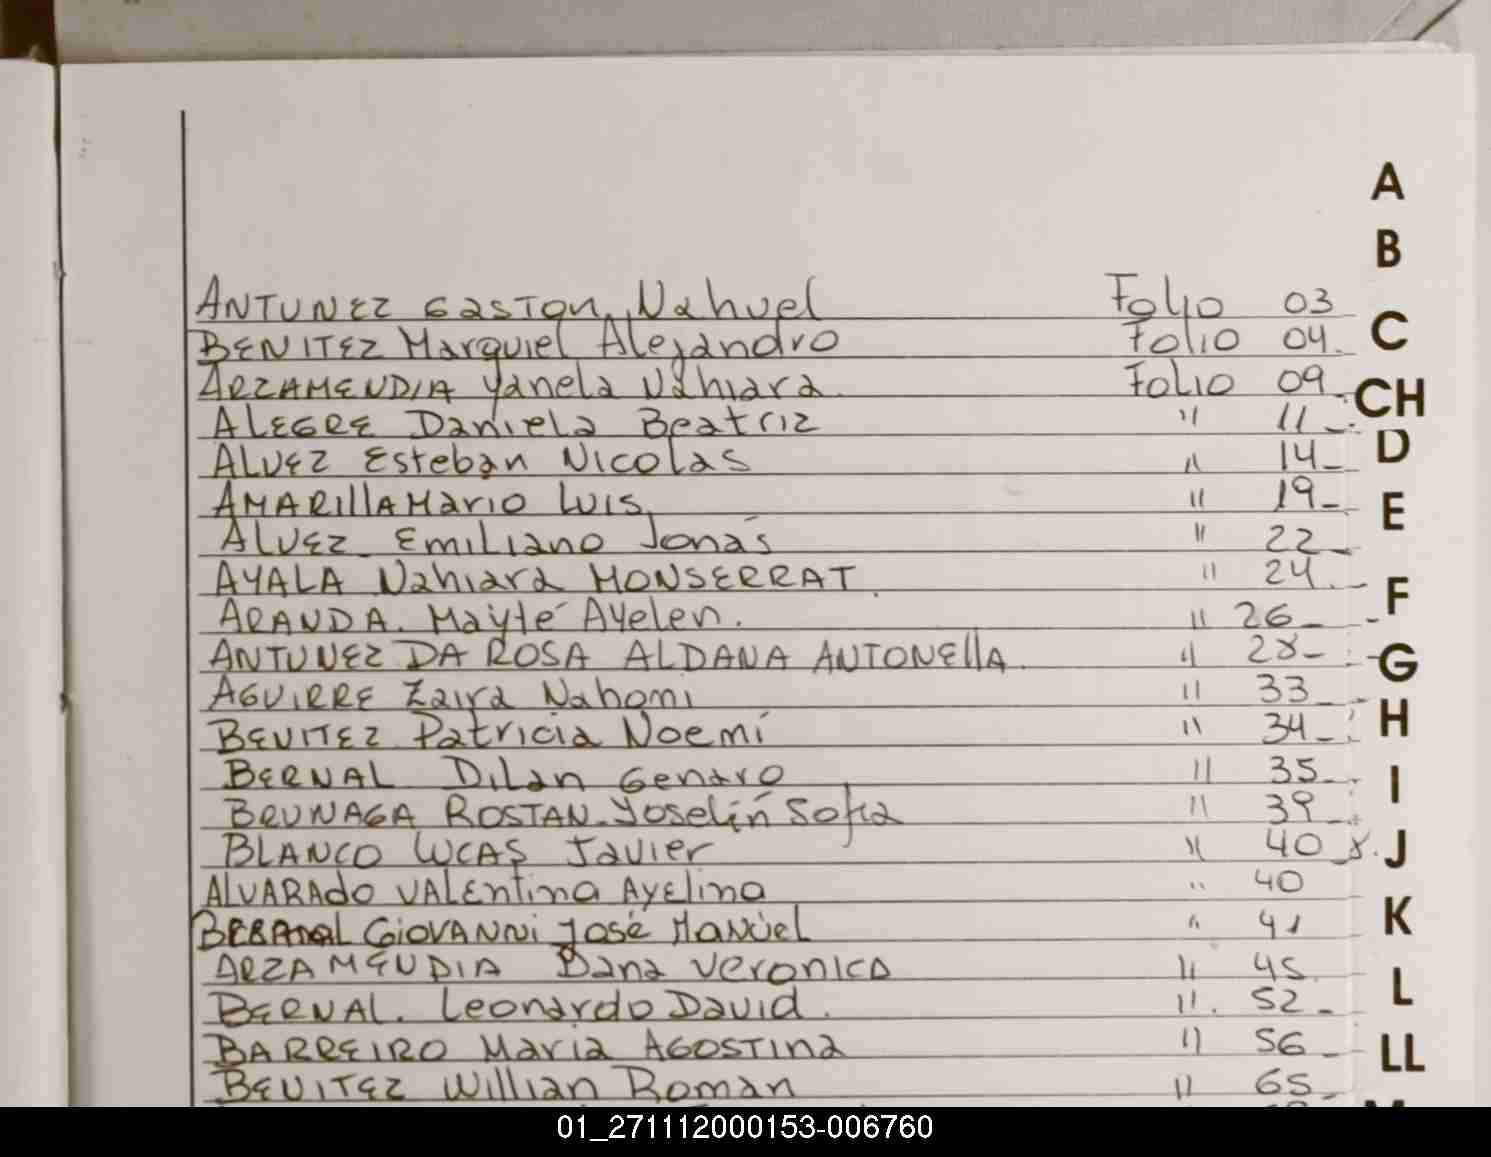 A
B
ANTUNEZ Gaston Nahuel Folio 03
BENITEZ Marquiel Alejandro Folio 04. C
ARZAMENDIA Yanela Nahiara. Folio 09 CH
ALEGRE Daniela Beatriz " 11 -
ALVEZ Esteban NICOLAS " 14 - D
AMARILLA Mario LUIS " 19 - E
ALVEZ Emiliano Jonás " 22 -
AYALA Nahiara MONSERRAT. " 24. - F
ARANDA. Mayté Ayelen. " 26 -
ANTUNEZ DA ROSA ALDANA ANTONElla. " 28 - G
AGUIRRE Zaira Nahomi " 33 -
BENITEZ Patricia Noemí " 34 - H
BERNAL Dilan Genaro " 35 - I
BRUNAGA ROSTAN - Yoselin Sofia " 39 -
BLANCO LUCAS Javier " 40 J
ALVARAdo VALEntina AyElina " 40
GiOVANNi José Manuel " 41 K
ARZAMENDIA Dana Veronica " 45
BERNAL. Leonardo David. " 52 - L
BARREIRO Maria AGOSTINA " 56 - LL
BENITEZ Willian Roman " 65 -
01_271112000153-006760